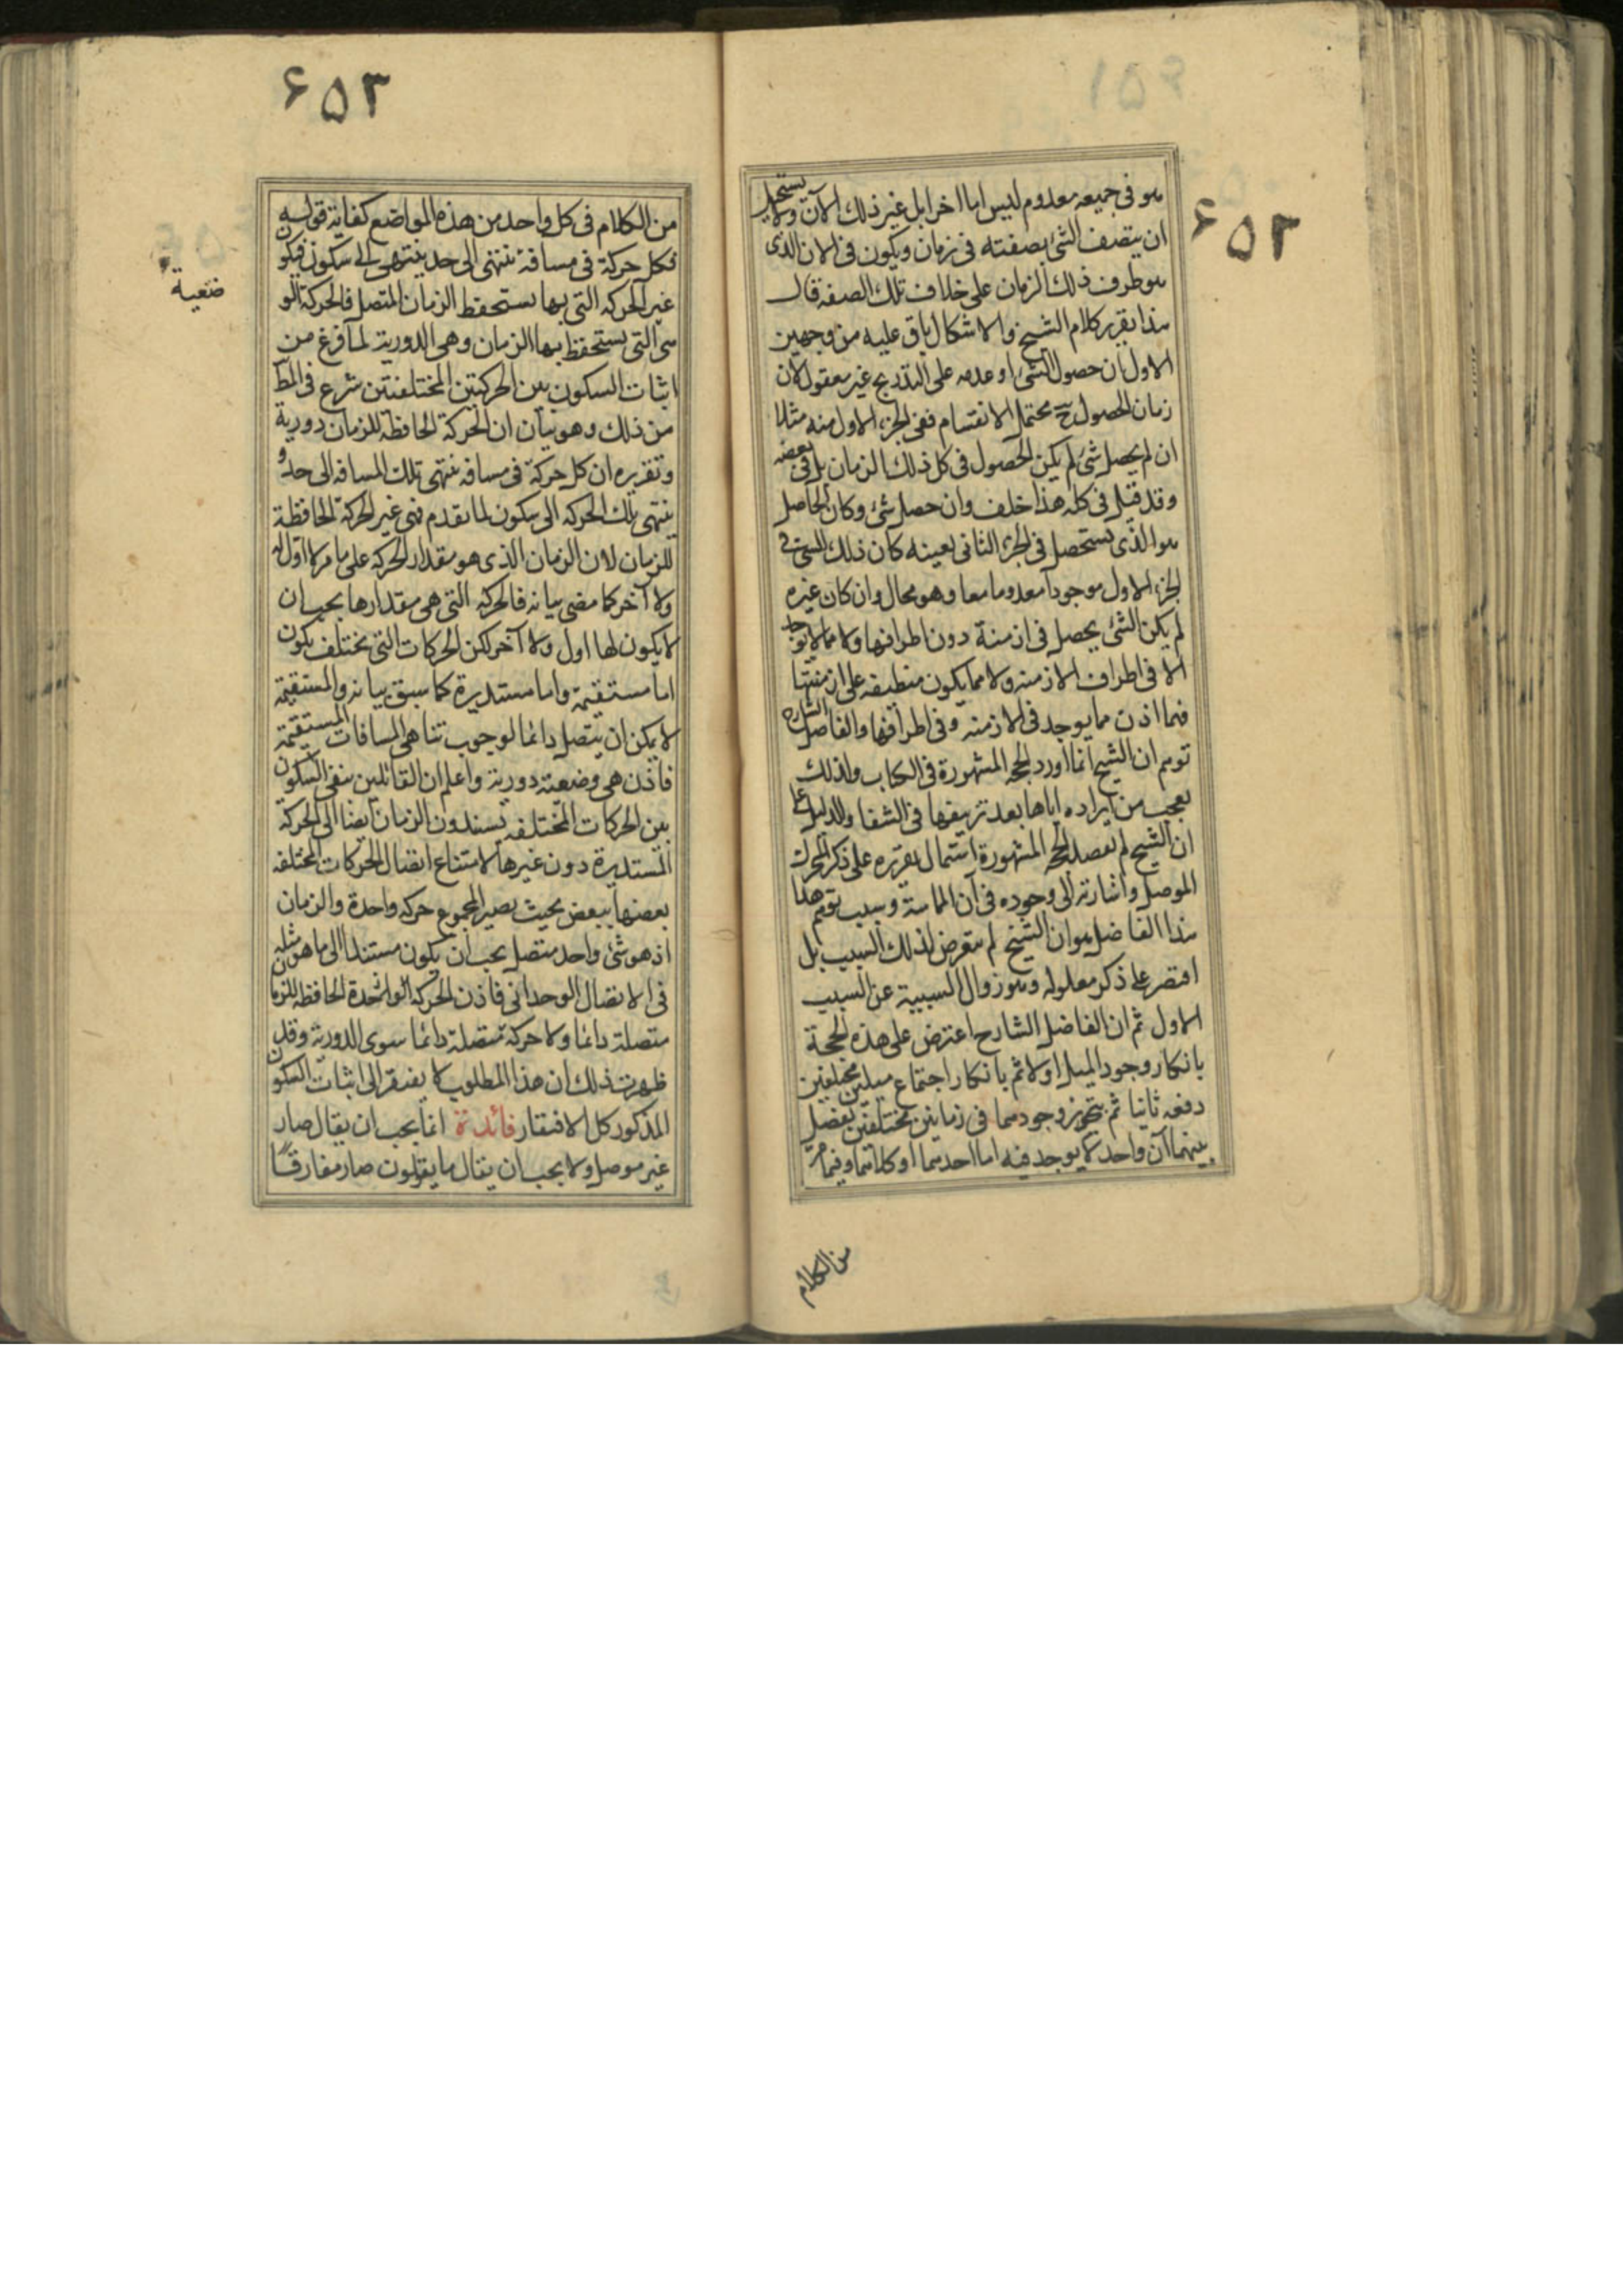 ۶۵۲
هو فى جميعه معدوم ليس اما اخرا بل غير ذلك الآن ولا يستحيل
ان يتصف الشئ بصفته فى زمان ويكون فى الان الذى
هو طرف ذلك الزمان على خلاف تلك الصفة قال
هذا تقرير كلام الشيخ والاشكال باق عليه من وجهين
الاول ان حصول الشئ او عدمه على التدريج غير معقول لان
زمان الحصول ح محتمل الانقسام ففى الجزء الاول منه مثلا
ان لم يحصل شئ لم يكن الحصول فى كل ذلك الزمان بل فى بعضه
وقد قيل فى كله هذا خلف وان حصل شئ وكان الحاصل
هو الذى يستحصل فى الجزء الثانى بعينه كان ذلك الشئ فى
الجزء الاول موجودا معدوما معا وهو محال وان كان غيره
لم يكن الشئ يحصل فى ازمنة دون اطرافها ولا مما لا يوجد
الا فى اطراف الازمنه ولا مما يكون منطبقه على ازمنتها
فهما اذن مما يوجد فى الازمنه وفى اطرافها والفاضل الشارح
توهم ان الشيخ انما اورد الحجه المشهورة فى الكتاب ولذلك
تعجب من ايراده اياها بعد تزييفها فى الشفا والدليل على
ان الشيخ لم يقصد الحجه المشهورة اشتمال تقريره على ذكر المحرك
الموصل واشارته الى وجوده فى آن المماسة وسبب توهم هذا
هذا الفاضل هو ان الشيخ لم يتعرض لذلك السبب بل
اقتصر على ذكر معلوله وهو زوال السببية عن السبب
الاول ثم ان الفاضل الشارح اعترض على هذه الحجة
بانكار وجود الميل اولا ثم بانكار اجتماع ميلين مختلفين
دفعه ثانيا ثم بتجويز وجودهما فى زمانين مختلفين يفصل
بينهما آن واحد لا يوجد فيه اما احدهما او كلاهما وفيما مر
من الكلام
۶۵۳
من الكلام فى كل واحد من هذه المواضع كفاية قوله
فكل حركة فى مسافة تنتهى الى حد ينتهى الى سكون فيكون
غير الحركه التى بها يستحفظ الزمان المتصل فالحركة الو
ضعية
هى التى يستحفظ بها الزمان وهى الدورية لما فرغ من
اثبات السكون بين الحركتين المختلفتين شرع فى المط
من ذلك وهو بيان ان الحركة الحافظة للزمان دورية
وتقريره ان كل حركة فى مسافه تنتهى تلك المسافه الى حد و
ينتهى تلك الحركه الى سكون لما تقدم فهى غير الحركة الحافظة
للزمان لان الزمان الذى هو مقدار الحركه على ما مر لا اول له
ولا آخر كما مضى بيانه فالحركه التى هى مقدارها يجب ان
لا يكون لها اول ولا آخر لكن الحركات التى تختلف يكون
اما مستقيمة واما مستديرة كما سبق بيانه والمستقيمة
لا يمكن ان يتصل دائما لوجوب تناهى المسافات المستقيمة
فاذن هى وضعية دورية واعلم ان القائلين بنفى السكون
بين الحركات المختلفه يسندون الزمان ايضا الى الحركة
المستديرة دون غيرها لامتناع اتصال الحركات المختلفه
بعضها ببعض بحيث يصير المجموع حركه واحدة والزمان
اذ هو شئ واحد متصل يجب ان يكون مستندا الى ما هو مثله
فى الاتصال الوحدانى فاذن الحركه الواحدة الحافظه للزمان
متصلة دائما ولا حركة متصلة دائما سوى الدورية وقد
ظهر من ذلك ان هذا المطلوب لا يفتقر الى اثبات السكون
المذكور كل الافتقار فائدة انما يجب ان يقال صار
غير موصل ولا يجب ان يقال ما يقولون صار مفارقا